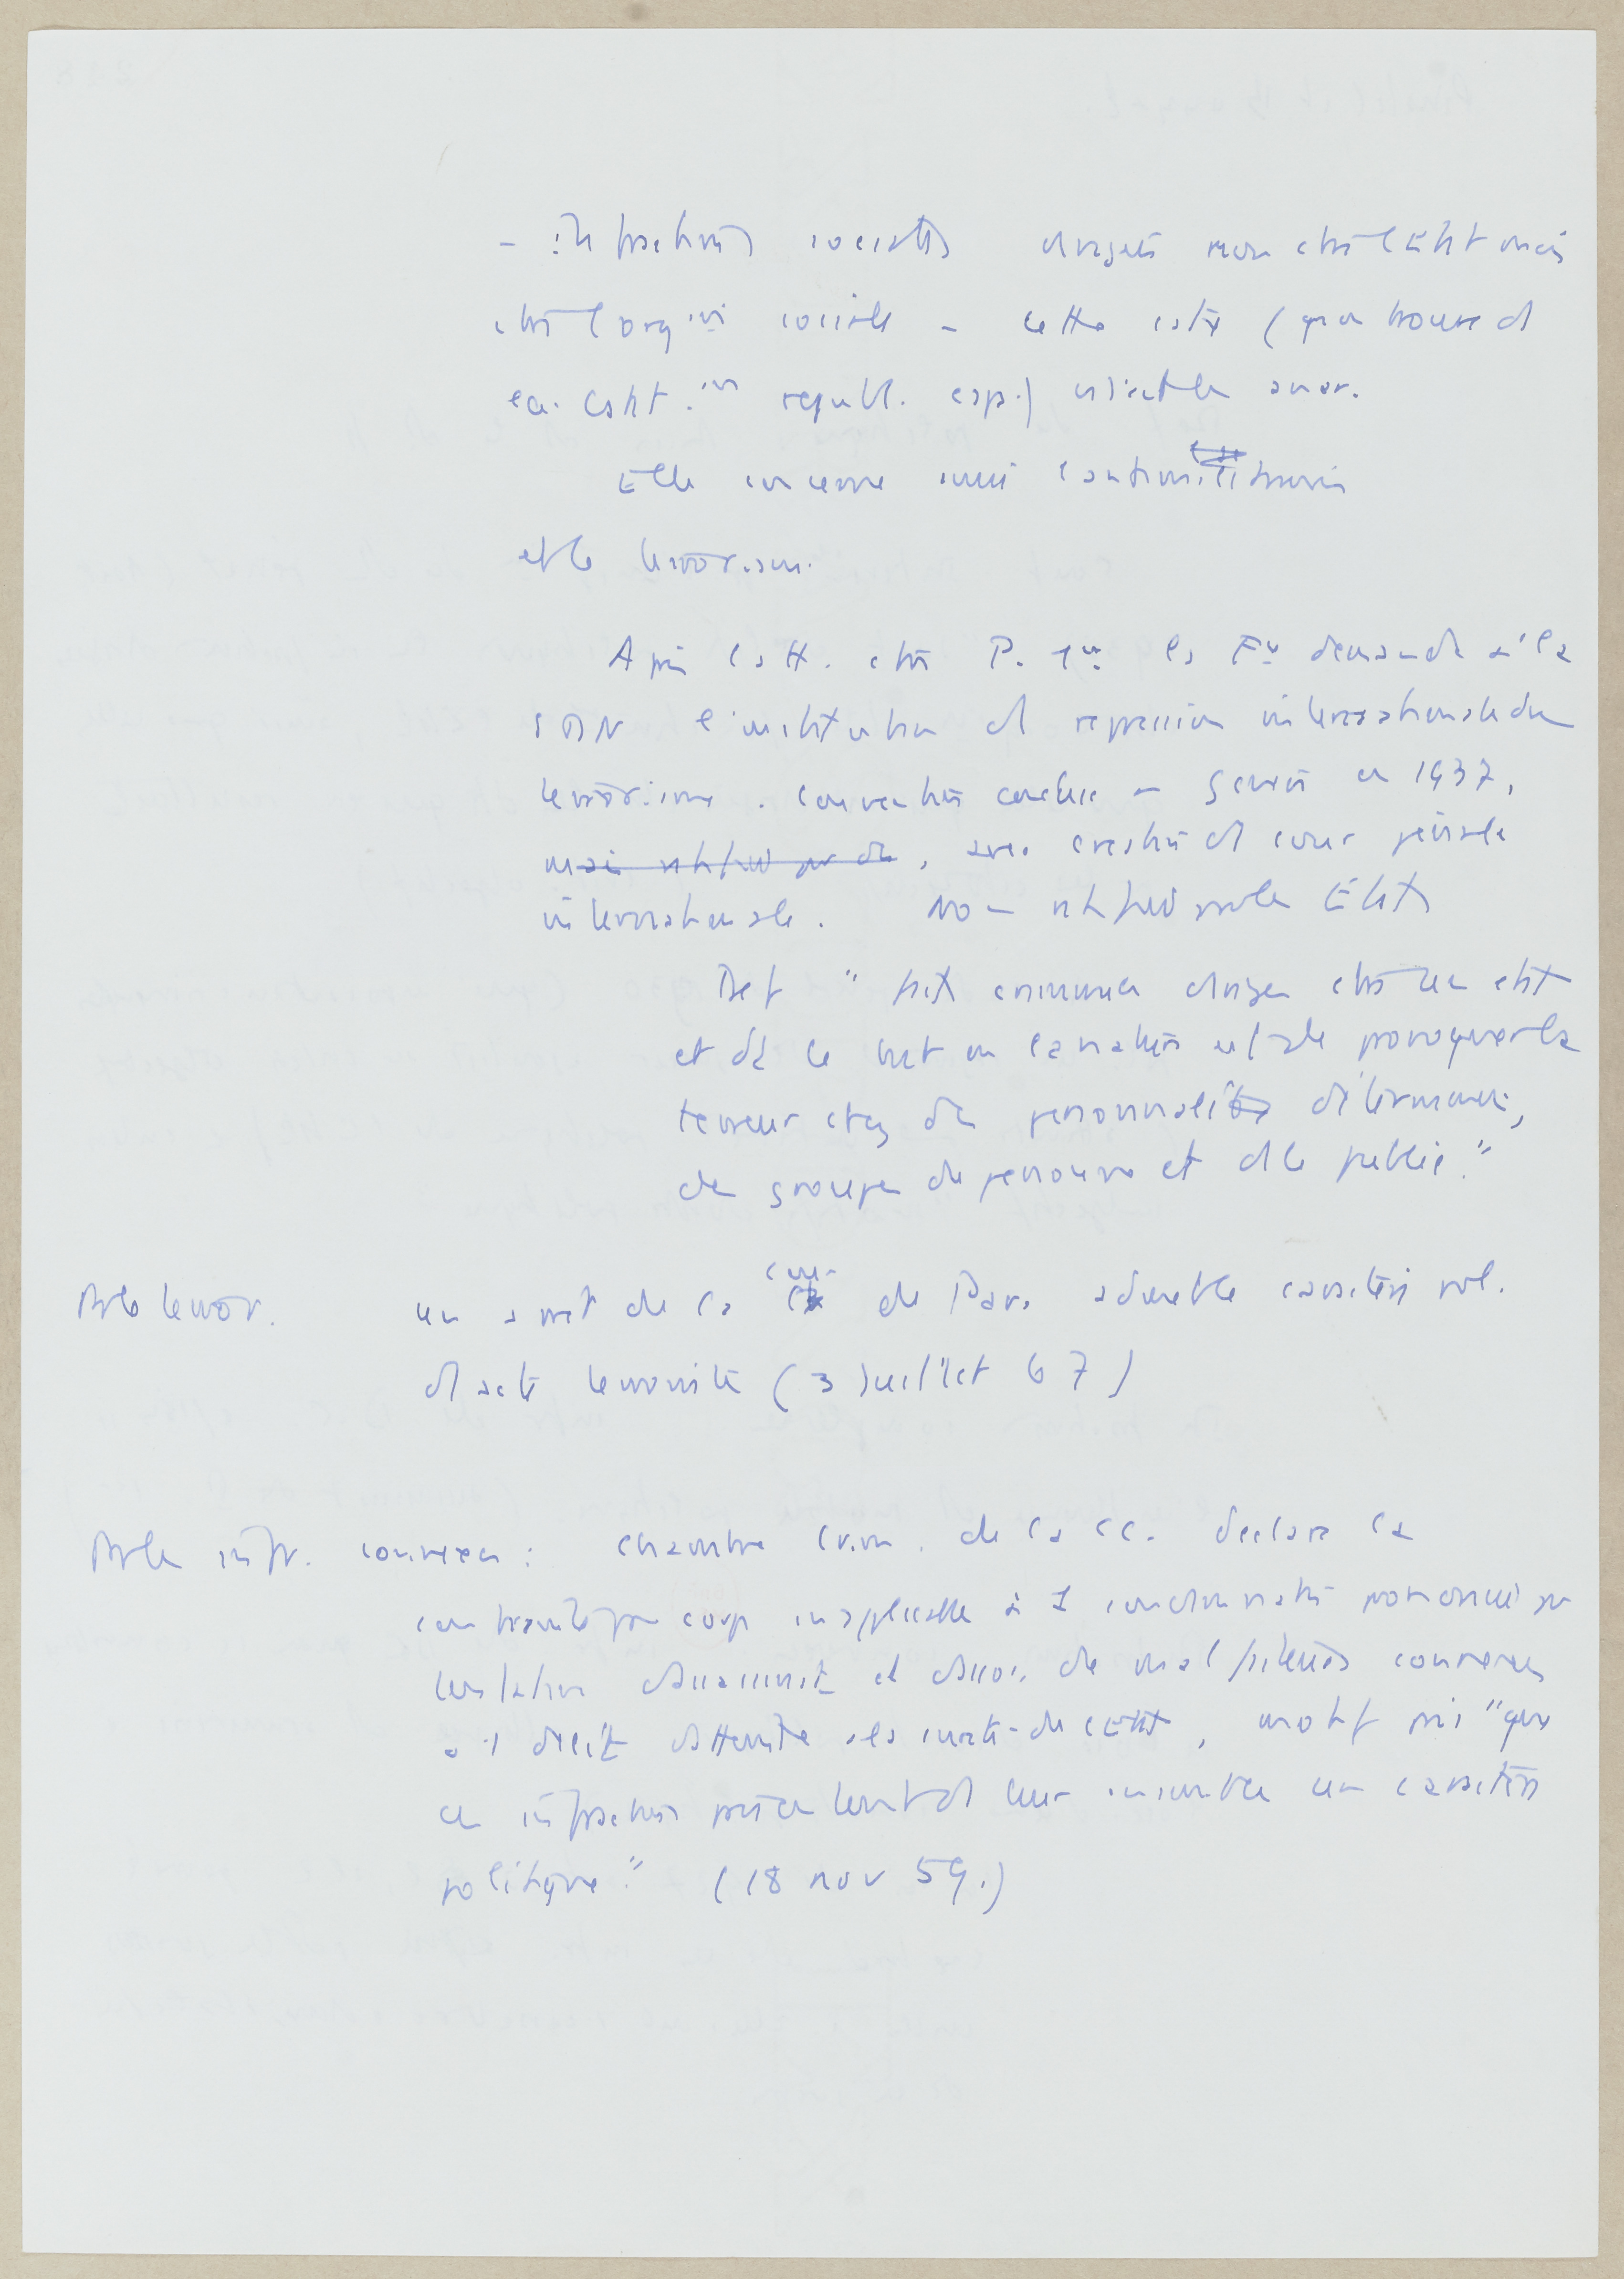 - infractions sociales dirigées non ctre l'État mais
ctre l'org.ion sociale - cette cat. (qu'on trouve ds
républ. esp.) anar.
Elle concerne aussi
et le terrorisme.
Après l'att. ctre P. 1er la Fce demande à la
SDN l'institution d répression internationale du
terrorisme. Convention conclue à Genève en 1937,
mais ratifiée par des, avec création d cour pénale
internationale. Non ratifiée par les États
Def "fait criminel dirigé ctre un état
et dt le but ou la nature est de provoquer la
terreur chez des personnalités déterminées,
des groupes de personnes et ds le public."
Pr le terror. un arrêt de la Cour de Paris admet le caractère pol.
d'acte terroriste (3 juillet 67)
Pr les infr. connexes : Chambre crim. de la CC. déclare la
contrainte par corps inapplicable à 1 condamnation prononcée pr
tentative d'assassinat et d'assoc. de malfaiteurs connexes
à 1 délit d'atteinte à la sûreté de l'État, motif pris "que
ces infractions présentent ds leur ensemble un caractère
politique." (18 nov 59.)